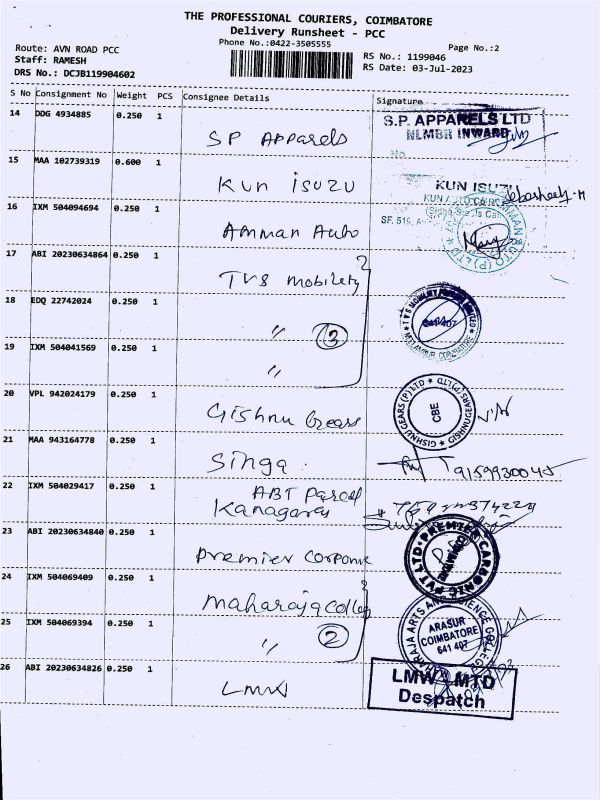 THE PROFESSIONAL COURIERS, COIMBATORE
Delivery Runsheet - PCC
Phone No.:0422-3505555
Page No.:2
Route: AVN ROAD PCC
Staff: RAMESH
DRS No.: DCJB119904602
RS No.: 1199046
RS Date: 03-Jul-2023
S No Consignment No Weight PCS Consignee Details Signature
14 DDG 4934885 0.250 1 SP Apparels
S.P. APPARELS LTD
NLMBR INWARD
No
15 MAA 102739319 0.600 1 Kun isuzu
KUN ISUZU
16 IXM 504094694 0.250 1 Amman Auto
SF. 519,
17 ABI 20230634864 0.250 1 TVS mobility
18 EDQ 22742024 0.250 1 " 3
641 407
19 IXM 504041569 0.250 1 "
20 VPL 942024179 0.250 1 Gishnu Gears
GISHNU GEARS (P) LTD ★ GISHNU GEARS (P) LTD ★
CBE
21 MAA 943164778 0.250 1 Singa
9159930045
22 IXM 504029417 0.250 1 ABT Parcel
Kanagaraj
23 ABI 20230634840 0.250 1 Premier Carbonic
PREMIER CARBONIC PVT LTD
24 IXM 504069409 0.250 1 Maharaja College
MAHARAJA ARTS AND SCIENCE COLLEGE
ARASUR
COIMBATORE
641 407
25 IXM 504069394 0.250 1 " 2
26 ABI 20230634826 0.250 1 LMW
LMW - MTD
Despatch